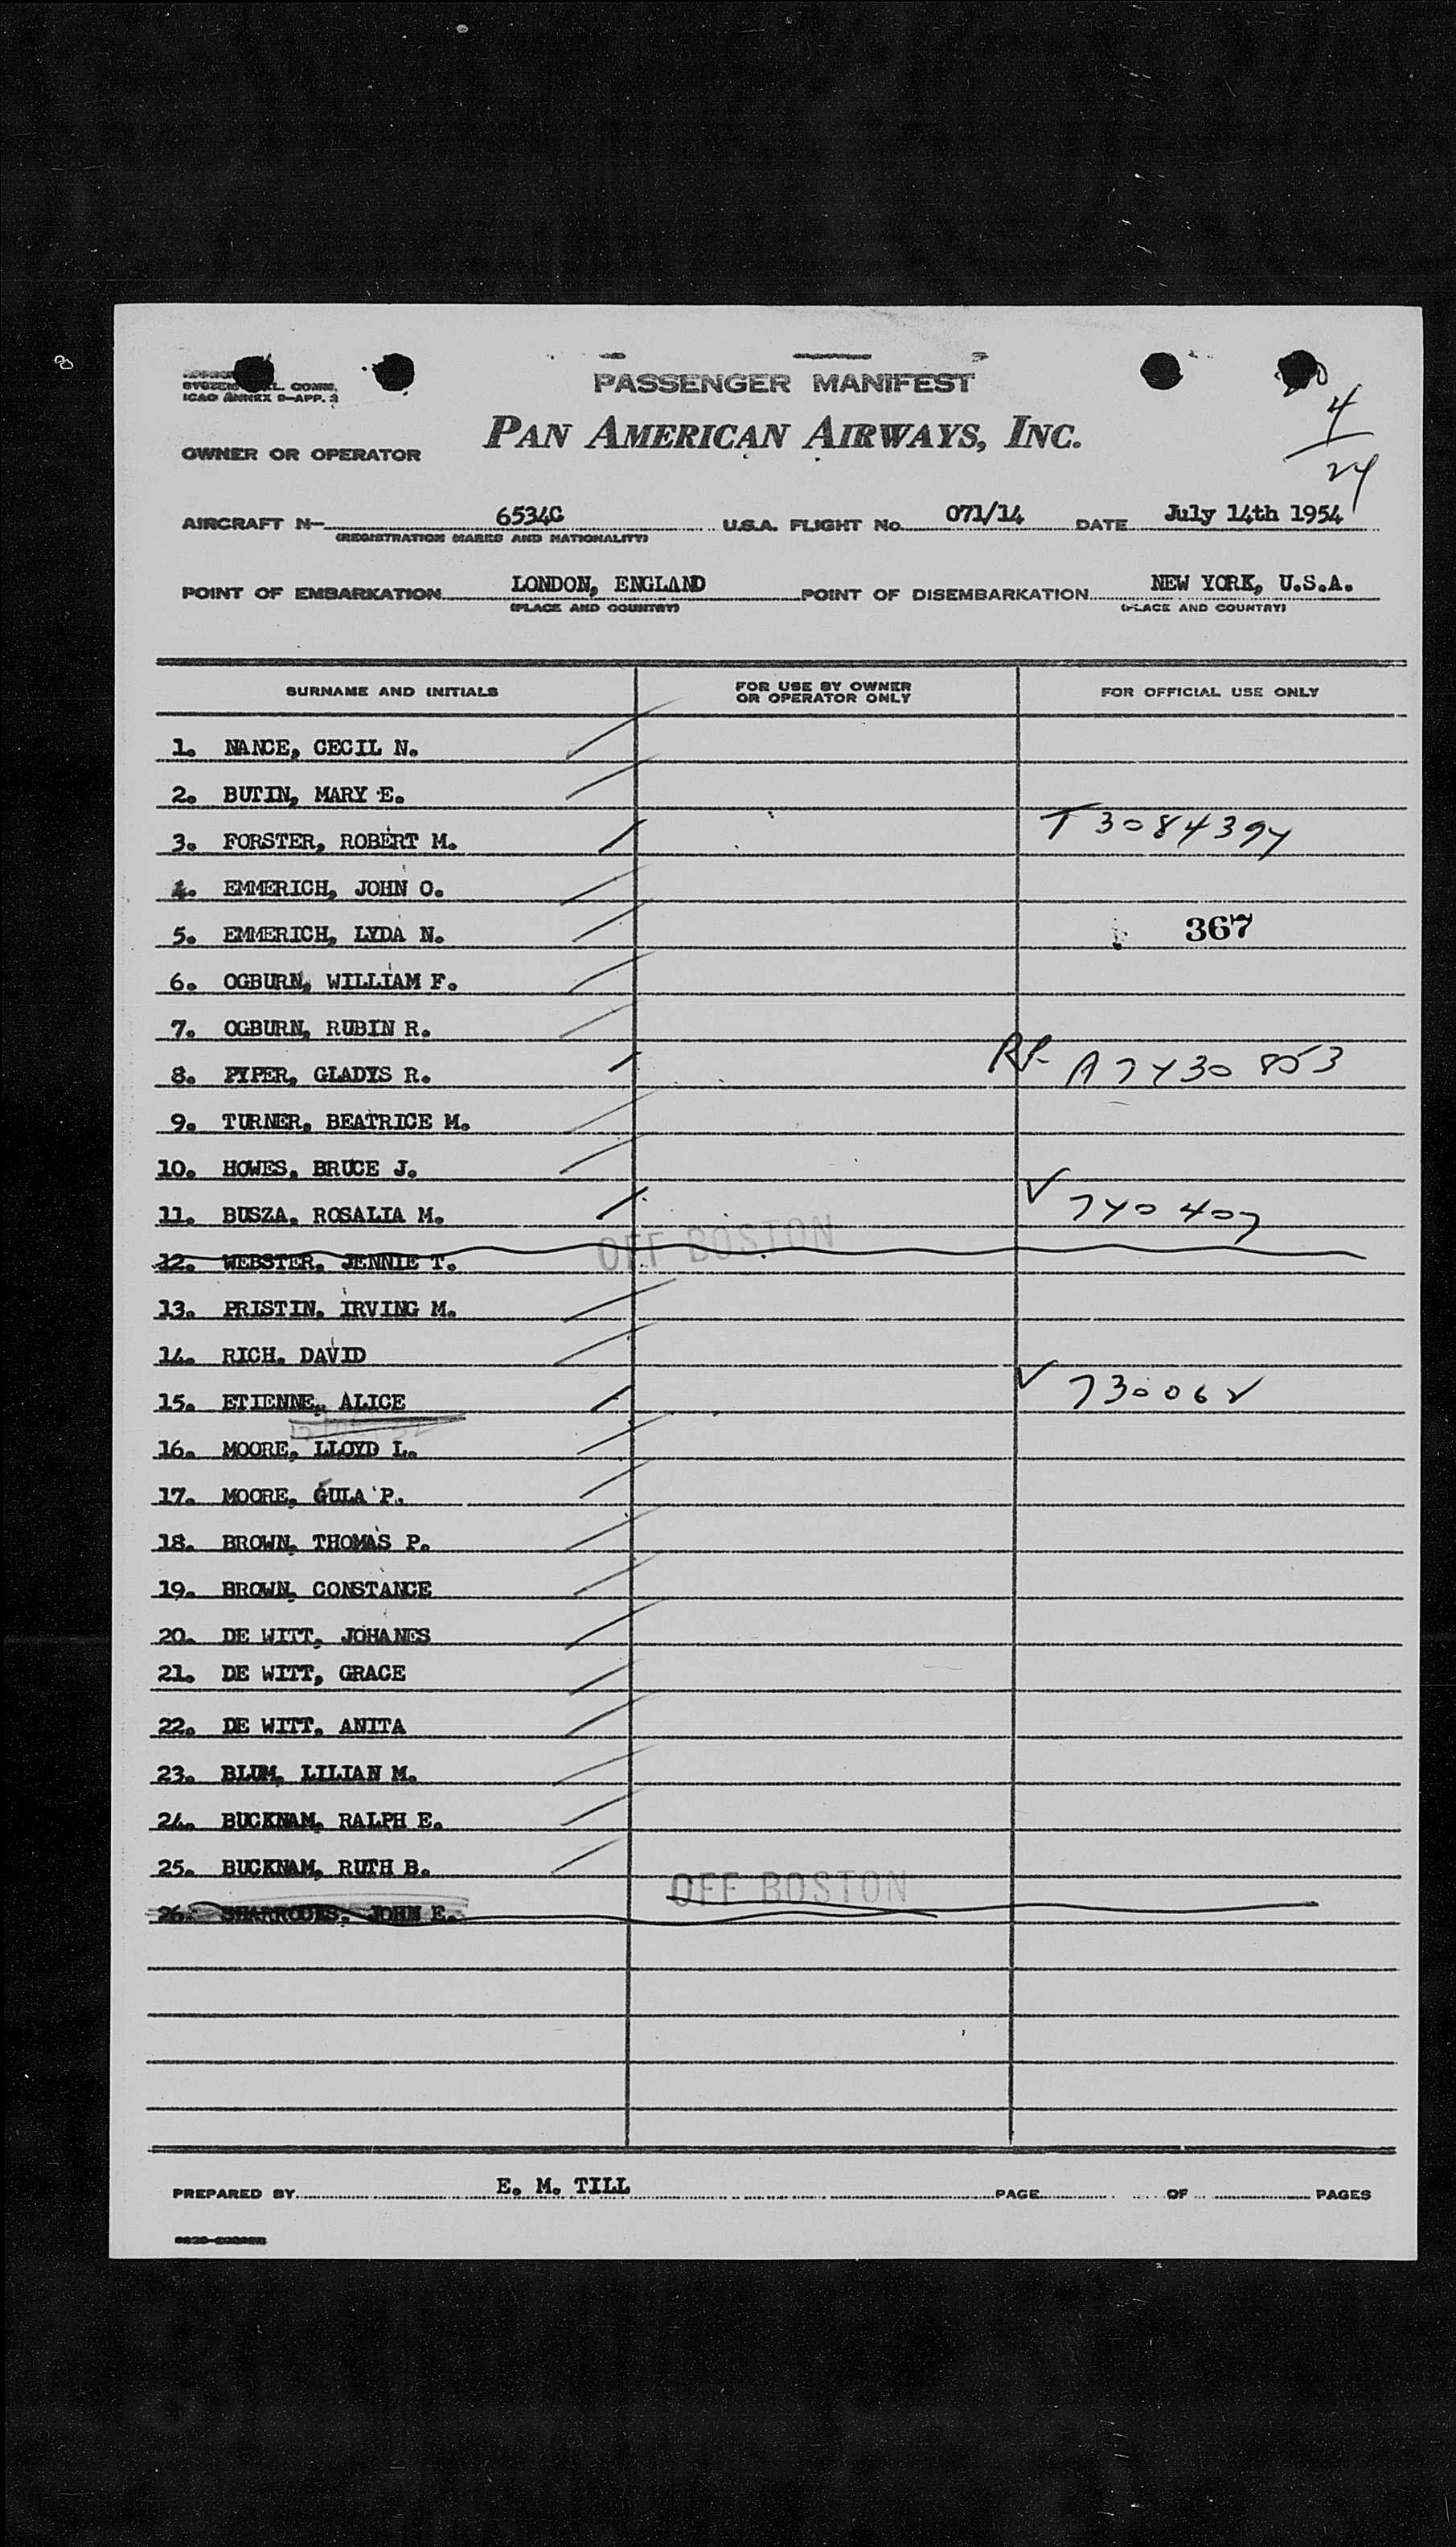 PASSENGER MANIFEST
SYSTEM L. COMM.
ICAO ANNEX 9-APP. 3
PAN AMERICAN AIRWAYS, INC.
4
24
OWNER OR OPERATOR
AIRCRAFT N- 6534C U.S.A. FLIGHT No. 071/14 DATE July 14th 1954
(REGISTRATION MARKS AND NATIONALITY)
POINT OF EMBARKATION LONDON, ENGLAND POINT OF DISEMBARKATION NEW YORK, U.S.A.
(PLACE AND COUNTRY) (PLACE AND COUNTRY)
SURNAME AND INITIALS FOR USE BY OWNER OR OPERATOR ONLY FOR OFFICIAL USE ONLY
1. NANCE, CECIL N.
2. BUTIN, MARY E.
3. FORSTER, ROBERT M. T 3084394
4. EMMERICH, JOHN O.
5. EMMERICH, LYDA N. 367
6. OGBURN, WILLIAM F.
7. OGBURN, RUBIN R.
8. PYPER, GLADYS R. A7430 853
9. TURNER, BEATRICE M.
10. HOWES, BRUCE J.
11. BUSZA, ROSALIA M. ✓ 740407
12. WEBSTER, JENNIE T. OFF BOSTON
13. PRISTIN, IRVING M.
14. RICH, DAVID
15. ETIENNE, ALICE ✓ 730062
16. MOORE, LLOYD L.
17. MOORE, GULA P.
18. BROWN, THOMAS P.
19. BROWN, CONSTANCE
20. DE WITT, JOHANES
21. DE WITT, GRACE
22. DE WITT, ANITA
23. BLUM, LILIAN M.
24. BUCKNAM, RALPH E.
25. BUCKNAM, RUTH B.
26. JOHN E. OFF BOSTON
PREPARED BY E. M. TILL PAGE OF PAGES